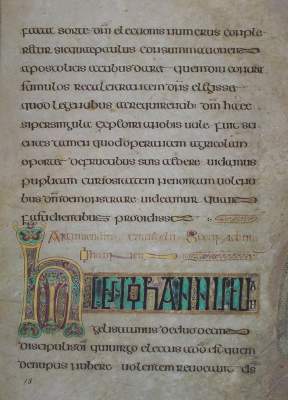 fuerat sorte dni electionis numerus comple
retur sicque paulus consummationem
apostolicis actibus daret quem diu contra
stimulos recalcitrantem dns elegisset
quod legentibus ac requirentibus dm
si per singula expediri a nobis utile
ens tamen quod operantem agricolam
oporteat de fructibus suis edere uitamus
puplicam curiositatem ne non tam uolenti
bus dm demonstrare uideamur quam
fastidientibus prodidisse
HIC EST IOHANNIS EU
AN
gelista unus de duodecim
discipulis di qui uirgo electus a do est quem
de nuptiis nubere uolentem reuocauit ds
18